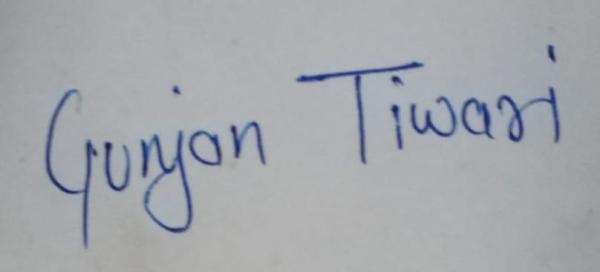 Gunjan Tiwari